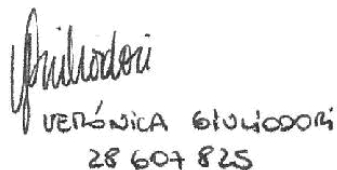 Giuliodori
VERÓNICA GIULIODORI
28 607 825